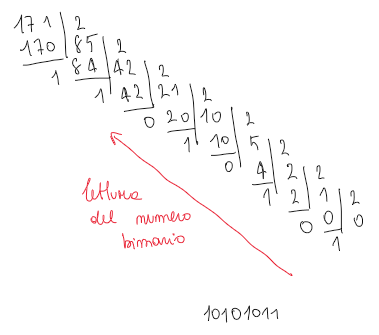 171 2
170 85 2
1 84 42 2
1 42 21 2
0 20 10 2
1 10 5 2
0 4 2 2
1 2 1 2
0 0 0
1
lettura
del numero
binario
10101011